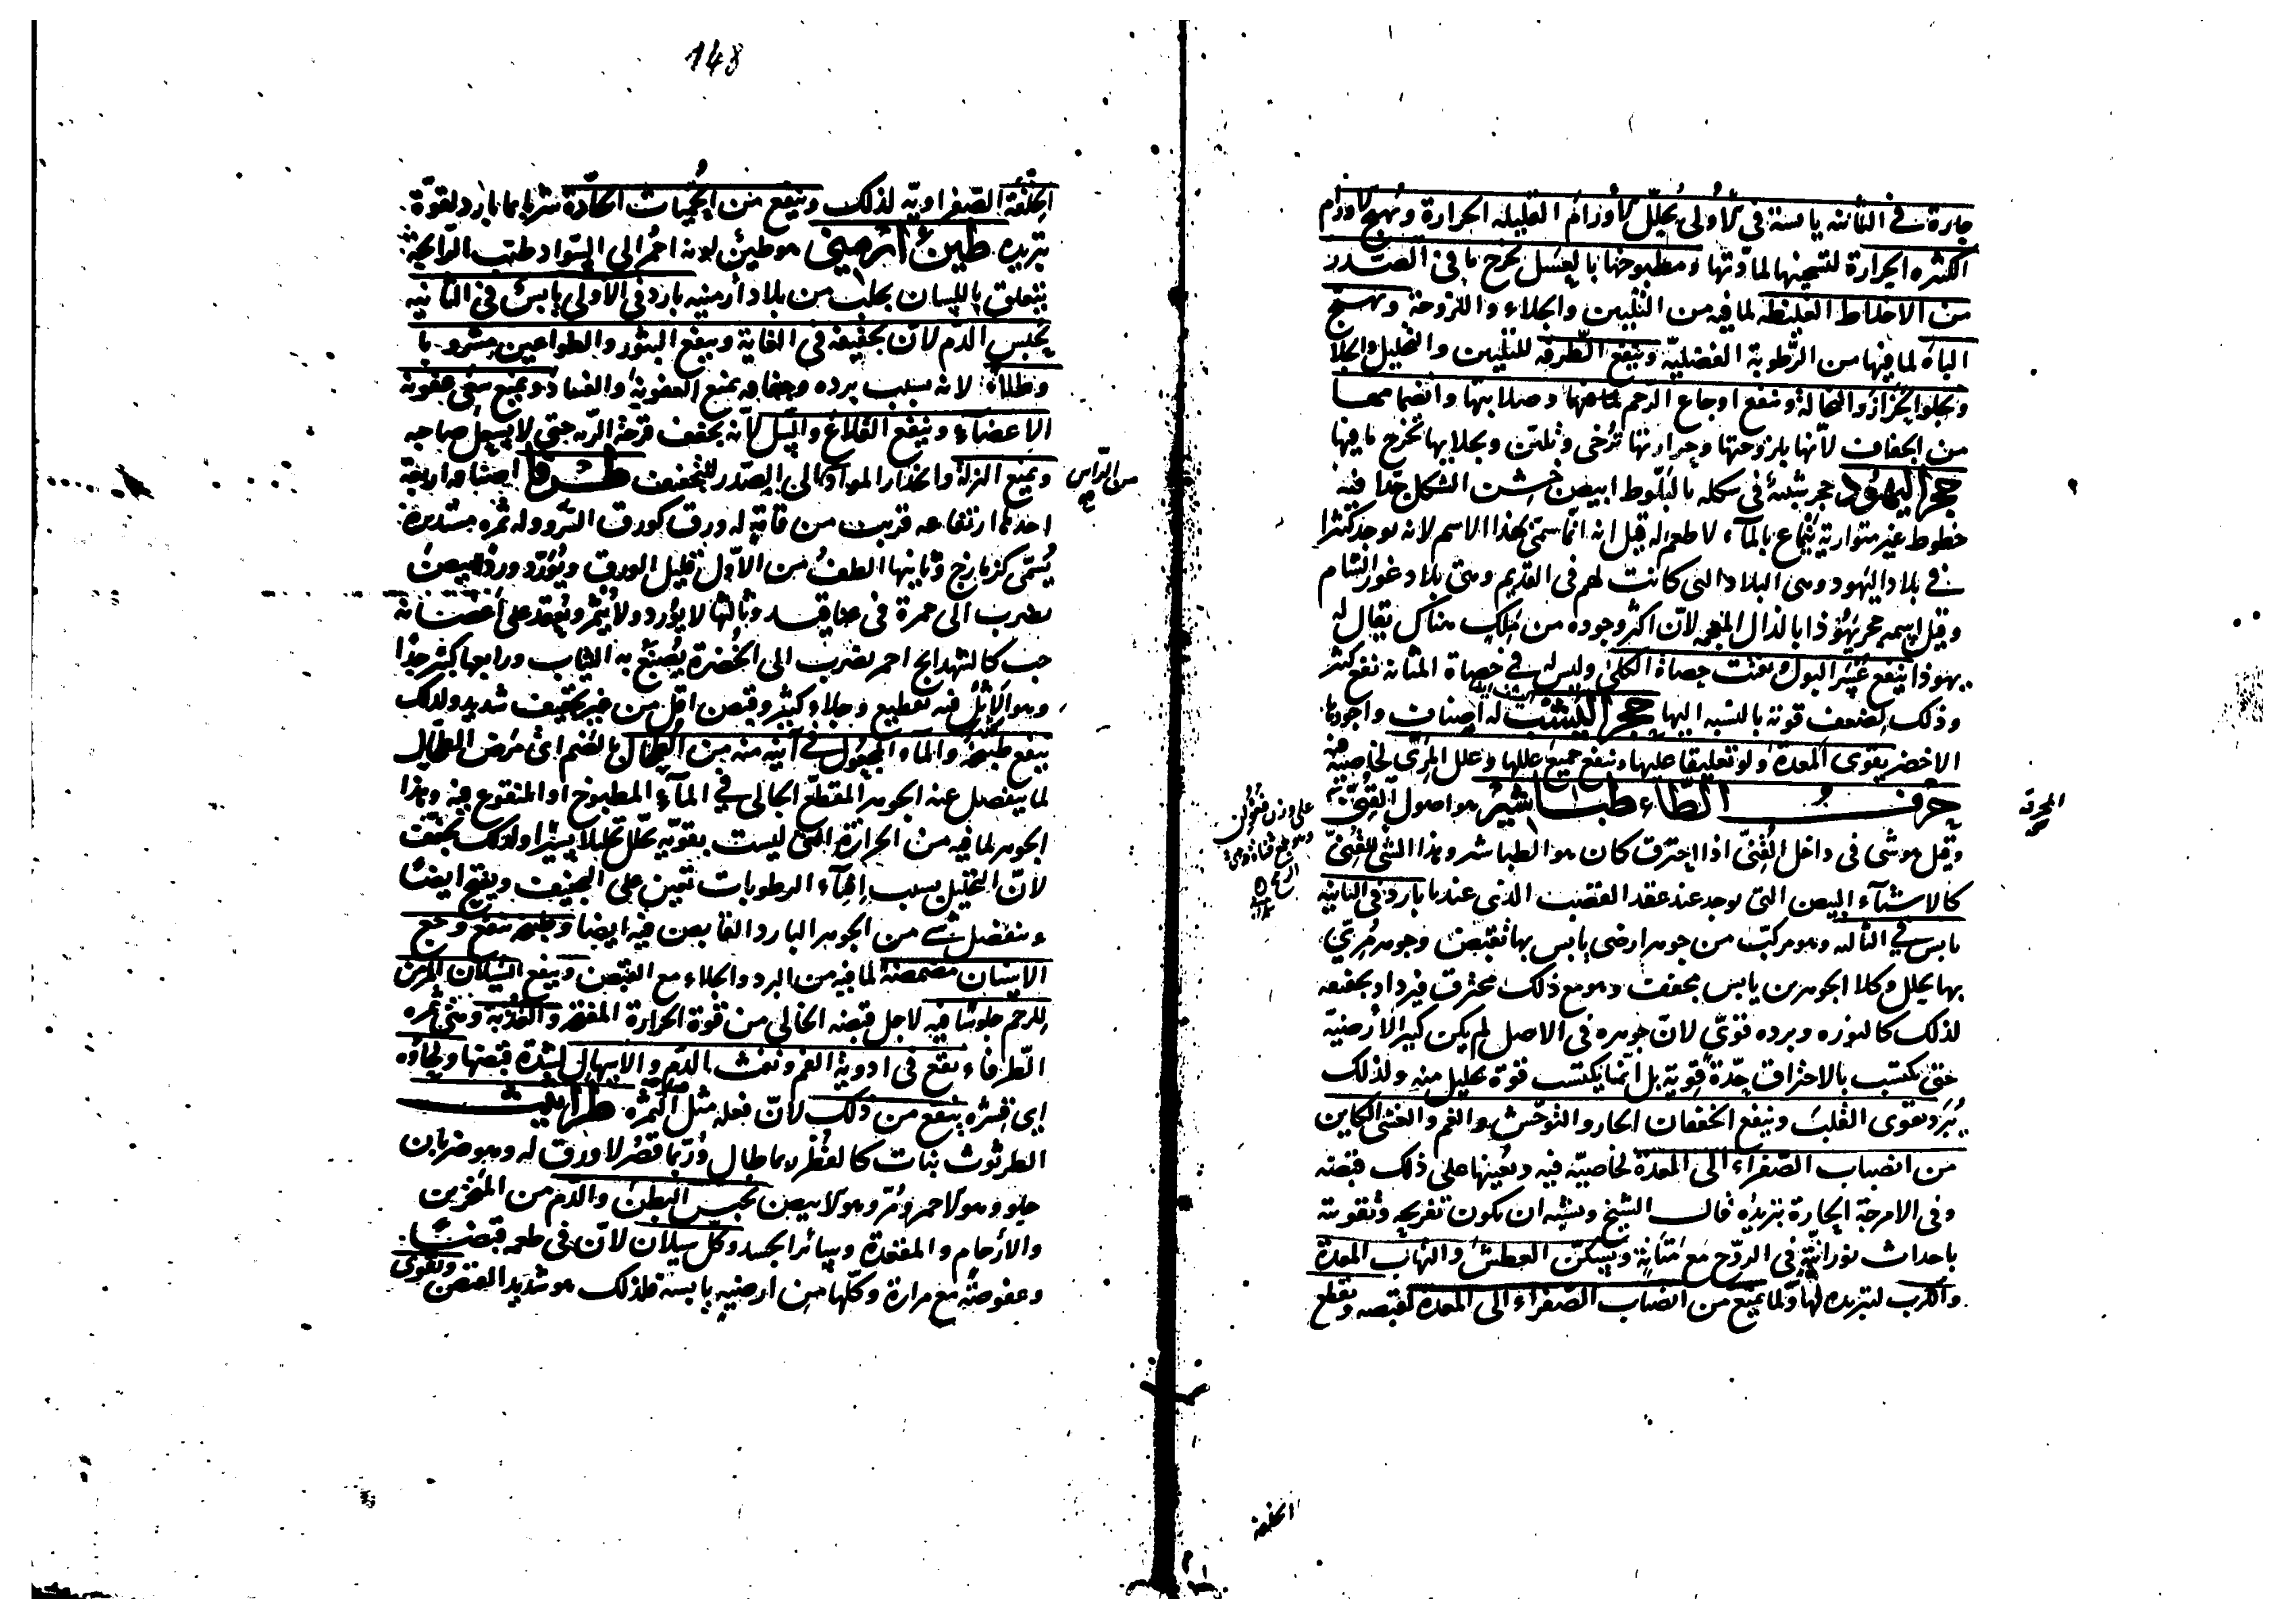 حارة في الثانية يابسة في الأولى يحلل الأورام القليلة الحرارة ويهيج الأورام
الكثيرة الحرارة لتسخينها لمادتها ومطبوخها بالعسل يخرج ما في الصدر
من الاخلاط الغليظة لما فيه من التليين والجلاء واللزوجة ويهيج
الباه لما فيها من الرطوبة الفضلية وينفع الطرفة للتليين والتحليل والجلا
ويجلوا الحزاز والنخالة وينفع اوجاع الرحم وصلابتها وانضمامها
من الجفاف لأنها بلزوجتها وحرارتها ترخى وتلين وبجلايها تخرج ما فيها
حجر اليهود حجر يشبه في شكله بالبلوط ابيض حسن الشكل جدا فيه
خطوط غير متوازية ينماع بالمآء لا طعم له قيل انه انما سمى بهذا الاسم لانه يوجد كثيرا
في بلاد اليهود وهى البلاد التى كانت لهم فى القديم وهى بلاد غور الشام
وقيل اسمه حجر يهوذا بالذال المعجمه لأن اكثر وجوده من هناك يقال له
يهوذا ينفع عسر البول ويفتت حصاة الكلى وليس له في حصاة المثانة نفع كثير
وذلك لضعف قوته بالنسبة اليها حجر اليشب له اصناف واجودها
الاخضر يقوى المعدة ولو تعليقا عليها وينفع جميع عللها وعلل المرى لخاصية فيه
حرف الطاء طباشير هو اصول القنى
المحرقة
على وزن فعول
وقيل هو شى فى داخل القنى اذا احترق كان هو الطباشير وهذا الشى للقنى
كالاشيآء البيض التى توجد عند عقد القصب الذى عندنا بارد فى الثانية
يابس في الثالثة وهو مركب من جوهر ارضى يابس بها تقبض وجوهر مرى
بها يحلل وكلا الجوهرين يابس مجفف وهو مع ذلك محترق فيزداد تجفيفه
لذلك كالنوره وبرده قوى لان جوهره فى الاصل لم يكن كثير الأرضية
حتى يكتسب بالاحتراق حدة قوية بل انما يكتسب قوة تحليل منه ولذلك
يبرد ويقوى القلب وينفع الخفقان الحار والتوحش والغم والغشى الكاين
من انصباب الصفراء الى المعدة لخاصية فيه ويعينها على ذلك قبضه
وفى الامزجة الحارة تبريده قال الشيخ ويشبه ان يكون تفريحه وتقويته
باحداث نورانية فى الروح مع متانة ويسكن العطش والتهاب المعدة
والكرب لتبريده لها ولما يمنع من انصباب الصفراء الى المعدة لقبضه ويقطع
الخلفة
148
الخلفة الصفراوية لذلك وينفع من الحميات الحادة شربا بماء بارد لقوة
تبريده طين ارمينى هو طين لونه احمر الى السواد طيب الرائحة
يتعلق باللسان يجلب من بلاد أرمنيه بارد فى الاولى يابس فى الثانية
يحبس الدم لان تجفيفه فى الغاية وينفع البثور والطواعين مشروبا
وطلاء لانه بسبب برده وجفافه يمنع العفونة والفساد ويمنع سعى عفونة
الاعضآء وينفع القلاع والسل لأنه يجفف قرحة الرئة حتى لا يسعل صاحبه
ويمنع النزلة وانحدار المواد الى الصدر للتجفيف طرفا اصنافه اربعة
من الرأس
احدها ارتفاعه قريب من قامة له ورق كورق السرو وله ثمرة مستديرة
يسمى كزمازج وثانيها الطف من الأول قليل الورق ويورد وردا ابيض
يضرب الى حمرة فى عناقيد وثالثها لا يورد ولا يثمر ويعقد على أغصانه
حب كالشهدانج احمر يضرب الى الخضرة يصبغ به الثياب ورابعها كبير جدا
وهو الأثل فيه تقطيع وجلاء كثير وقبض اقل من غير تجفيف شديد ولذلك
ينفع طبيخه والمآء المجعول في آنية منه من الطحال بالضم اى مرض الطحال
لما ينفصل عنه الجوهر المقطع الجالى في المآء المطبوخ او المنقوع فيه وهذا
الجوهر لما فيه من الحرارة التى ليست بقوية يحلل تحليلا يسيرا ولذلك يجفف
لأن التحليل بسبب افنآء الرطوبات تعين على التجفيف ويفتح ايضا
وينفصل شى من الجوهر البارد القابض فيه ايضا وطبيخه ينفع وجع
الاسنان مضمضة لما فيه من البرد والجلاء مع القبض وينفع السيلان المزمن
للرحم جلوسا فيه لاجل قبضه الخالى من قوة الحرارة وثمره
الطرفاء تقع فى ادوية الفم ونفث الدم والاسهال لشدة قبضها ولحاؤه
اى قشره ينفع من ذلك لان فعله مثل الثمرة طراثيث
الطرثوث نبات كالفطر ربما طال وربما قصر لا ورق له وهو ضربان
حلو وهو الاحمر ومر وهو الابيض يحبس البطن والدم من المنخرين
والأرحام والمقعدة وسائر الجسد وكل سيلان لان فى طعمه قبضا
وعفوصة مع مرارة وكلها من ارضيه يابسة فلذلك هو شديد القبض ويقوى